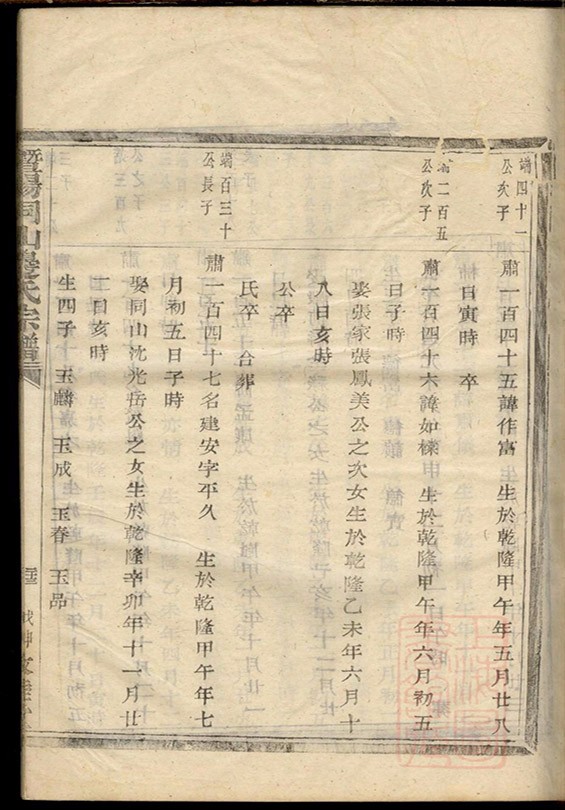 端四十一
公次子
肅一百四十五諱作富 生於乾隆甲午年五月廿八
日寅時 卒
二百五
公次子
肅一百四十六諱如樑 生於乾隆甲午年六月初五
日子時
娶張家張鳳美公之次女生於乾隆乙未年六月十
八日亥時
公卒
氏卒 合葬
端百三十
公長子
肅一百四十七名建安字平久 生於乾隆甲午年七
月初五日子時
娶同山沈光岳公之女生於乾隆辛卯年十一月廿
二日亥時
生四子 玉麟 玉成 玉春 玉品
暨陽同山邊氏宗譜